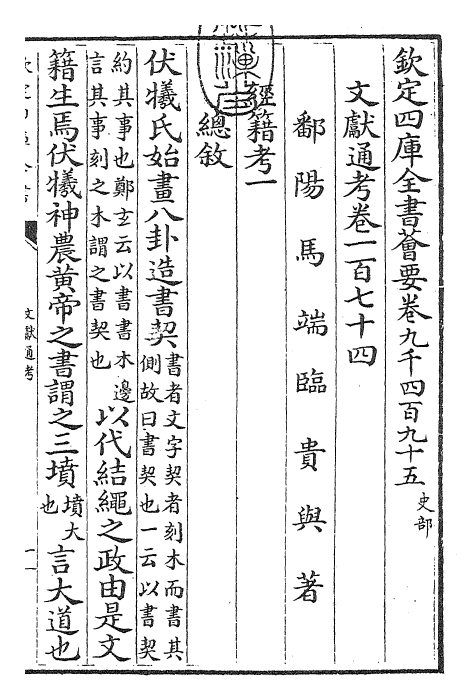 欽定四庫全書薈要卷九千四百九十五 史部
文獻通考卷一百七十四
鄱陽馬端臨貴與著
經籍考一
總敘
伏犧氏始畫八卦造書契書者文字契者刻木而書其側故曰書契也一云以書契
約其事也鄭玄云以書書木邊言其事刻之木謂之書契也以代結繩之政由是文
籍生焉伏犧神農黄帝之書謂之三墳墳大也言大道也
文獻通考
一